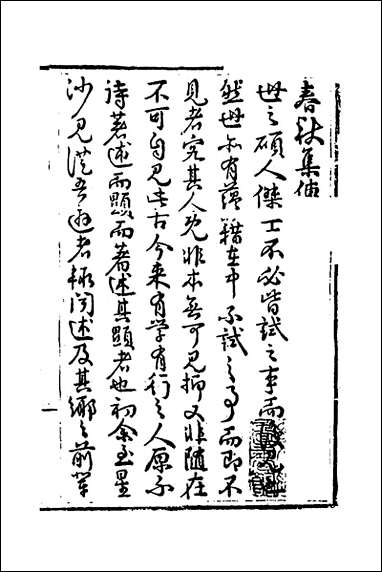 春秋集傳
世之碩人傑士不必皆試之事而
然世亦有蘊藉在中不試之事而即不
見者究其人既非本無可見抑又非隨在
不可自見此古今来有学有行之人原不
待著述而顯而著述其顯者也初余至星
沙見從吾遊者輒間述及其鄉之前輩
一